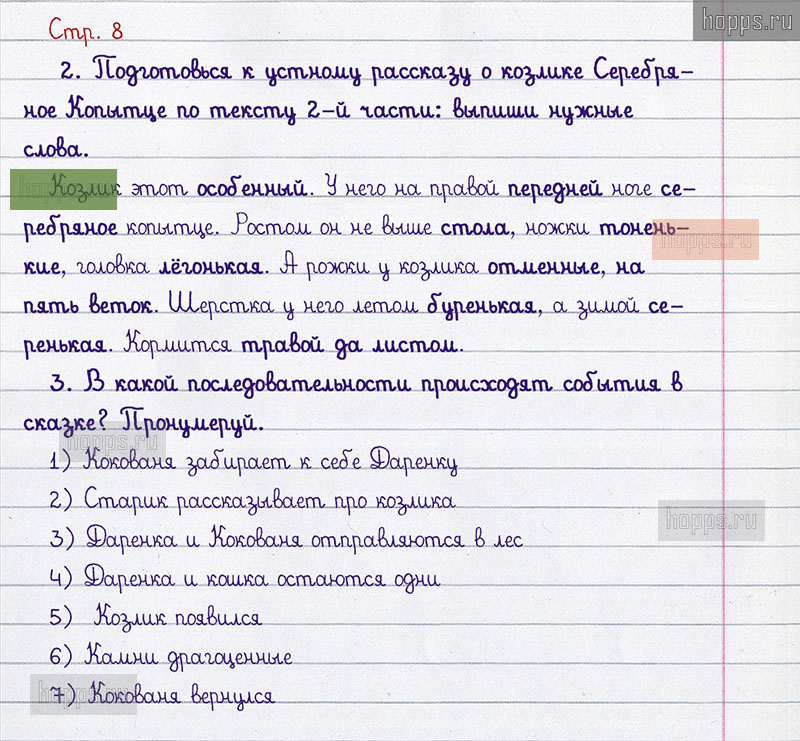 hopps.ru
Стр. 8
2. Подготовься к устному рассказу о козлике Серебря-
ное Копытце по тексту 2-й части: выпиши нужные
слова.
Козлик этот особенный. У него на правой передней ноге се-
ребряное копытце. Ростом он не выше стола, ножки тонень-
hopps.ru
кие, головка лёгонькая. А рожки у козлика отменные, на
пять веток. Шерстка у него летом буренькая, а зимой се-
ренькая. Кормится травой да листом.
3. В какой последовательности происходят события в
сказке? Пронумеруй.
hopps.ru
1) Кокованя забирает к себе Даренку
2) Старик рассказывает про козлика
hopps.ru
3) Даренка и Кокованя отправляются в лес
4) Даренка и кошка остаются одни
5) Козлик появился
6) Камни драгоценные
7) Кокованя вернулся
hopps.ru